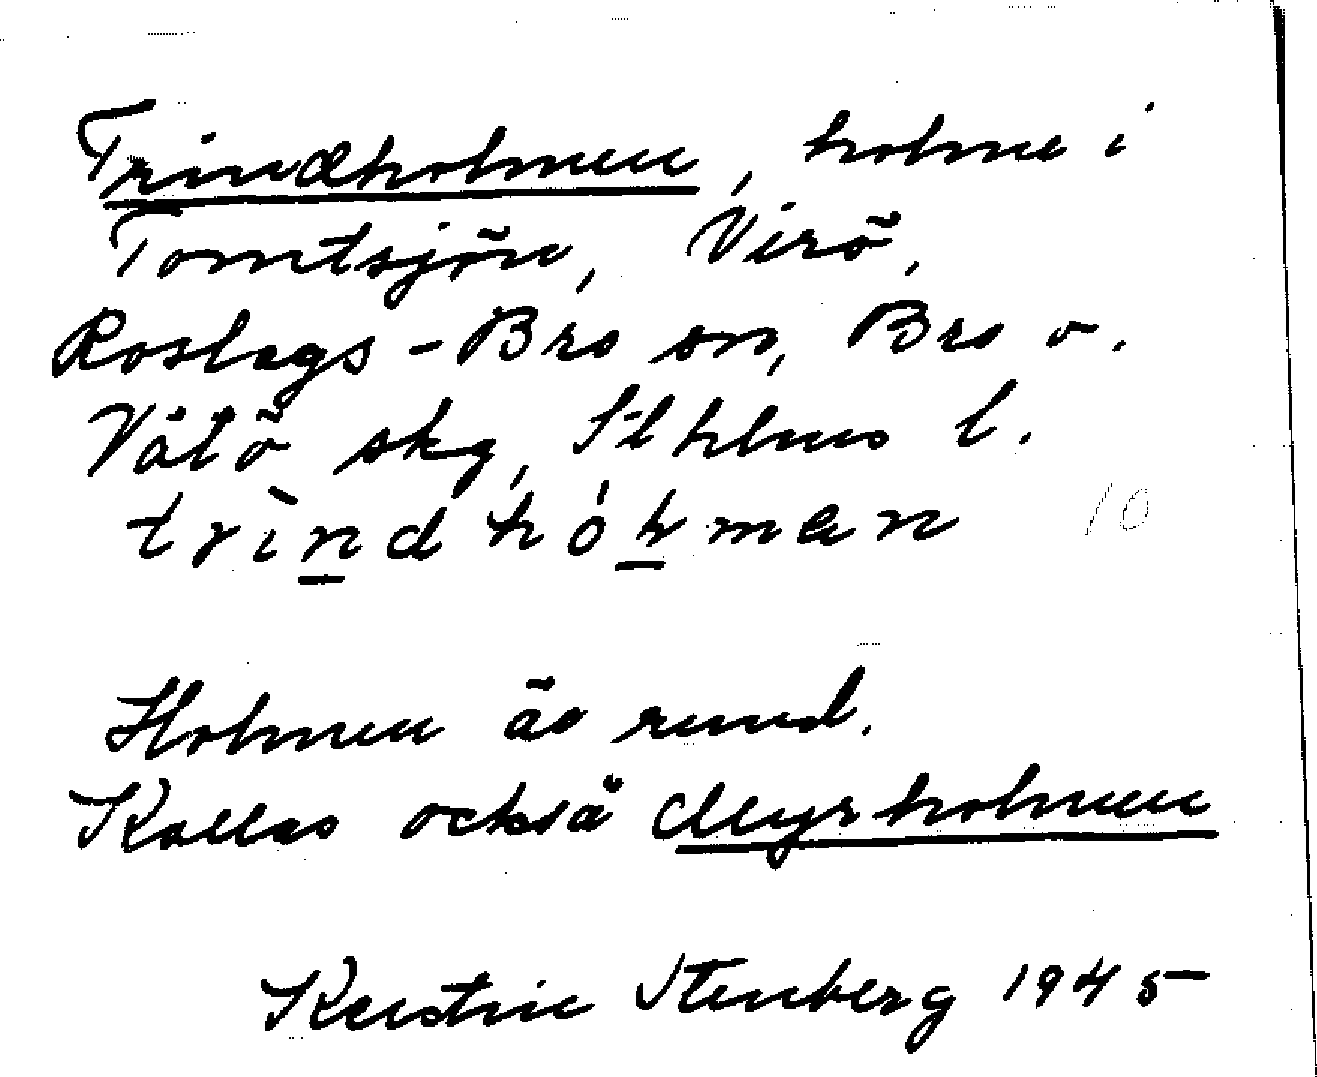 Trindholmen, holme i
Tomtsjön, Virö,
Roslags-Bro sn, Bro o.
Vätö skg, Sthlms l.
trìndhóhman 10
Holmen är rund.
Kallas också Myrholmen
Kerstin Stenberg 1945